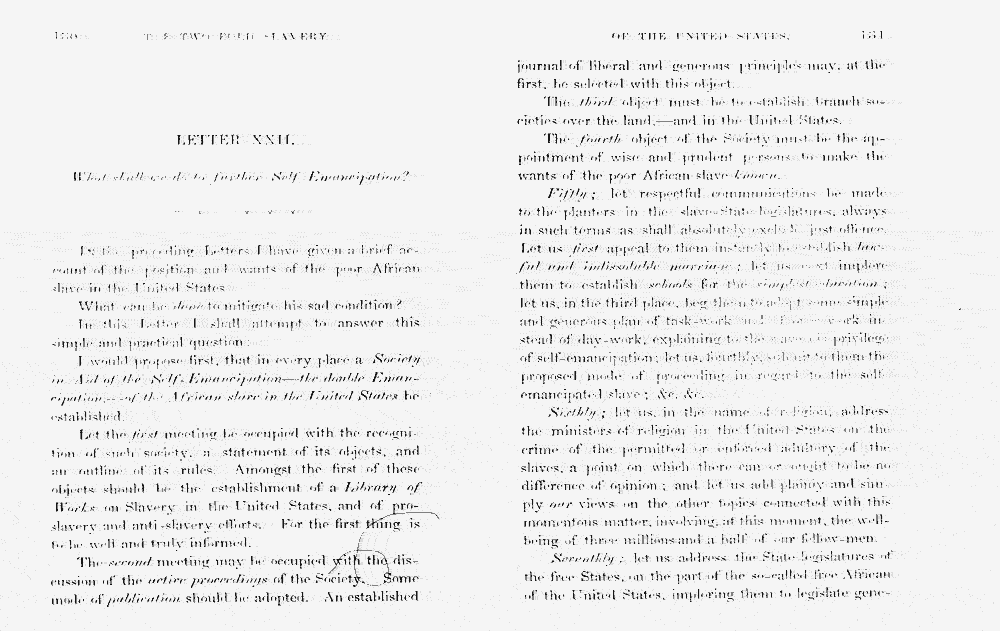 180
THE TWO-FOLD SLAVERY
LETTER XXII.
What shall we do to further Self-Emancipation?
In the preceding Letters I have given a brief ac-
count of the position and wants of the poor African
slave in the United States.
What can be done to mitigate his sad condition?
In this Letter I shall attempt to answer this
simple and practical question.
I would propose first, that in every place a Society
in Aid of the Self-Emancipation—the double Eman-
cipation—of the African slave in the United States be
established.
Let the first meeting be occupied with the recogni-
tion of such society, a statement of its objects, and
an outline of its rules. Amongst the first of these
objects should be the establishment of a Library of
Works on Slavery in the United States, and of pro-
slavery and anti-slavery efforts. For the first thing is
to be well and truly informed.
The second meeting may be occupied with the dis-
cussion of the active proceedings of the Society. Some
mode of publication should be adopted. An established
OF THE UNITED STATES.
181
journal of liberal and generous principles may, at the
first, be selected with this object.
The third object must be to establish branch so-
cieties over the land,—and in the United States.
The fourth object of the Society must be the ap-
pointment of wise and prudent persons to make the
wants of the poor African slave known.
Fifthly; let respectful communications be made
to the planters in the slave-State legislatures, always
in such terms as shall absolutely exclude just offence.
Let us first appeal to them instantly to establish law-
ful and indissoluble marriage; let us next implore
them to establish schools for the simplest education;
let us, in the third place, beg them to adopt some simple
and generous plan of task-work and work in-
stead of day-work, explaining to the slaves privilege
of self-emancipation; let us, fourthly, submit to them the
proposed mode of proceeding in regard to the self-
emancipated slave; &c. &c.
Sixthly; let us, in the name of religion, address
the ministers of religion in the United States on the
crime of the permitted or enforced adultery of the
slaves, a point on which there can or ought to be no
difference of opinion; and let us add plainly and sim-
ply our views on the other topics connected with this
momentous matter, involving, at this moment, the well-
being of three millions and a half of our fellow-men.
Seventhly; let us address the State-legislatures of
the free States, on the part of the so-called free African
of the United States, imploring them to legislate gene-